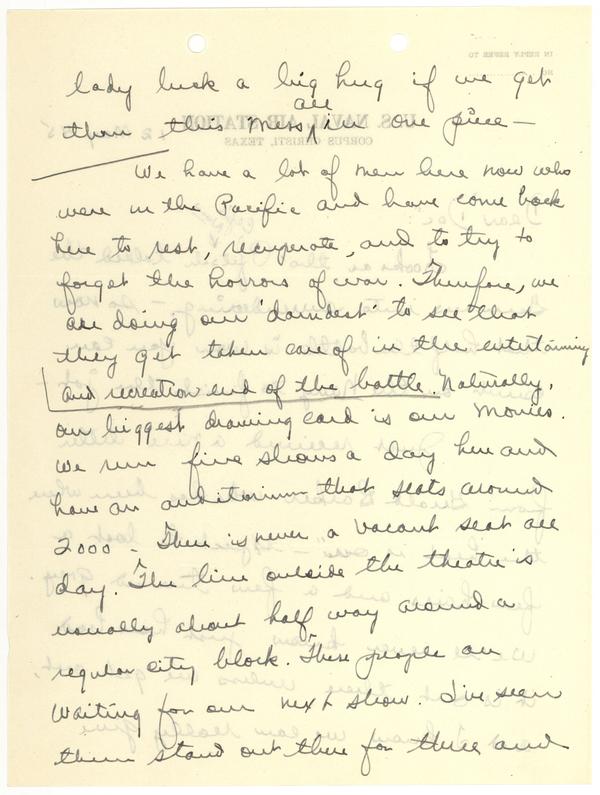 lady luck a big hug if we get
thru this mess all in one piece —
We have a lot of men here now who
were in the Pacific and have come back
here to rest, recuperate, and to try to
forget the horrors of war. Therefore, we
are doing our 'darndest' to see that
they get taken care of in the entertaining
and recreation end of the battle. Naturally,
our biggest drawing card is our Movies.
We run five shows a day here and
have an auditorium that seats around
2000 - There is never a vacant seat all
day. The line outside the theatre is
usually about half way around a
regular city block. These people are
waiting for our next show. I've seen
them stand out there for three and
IN REPLY REFER TO
U.S. NAVAL AIR STATION
CORPUS CHRISTI, TEXAS
Dear Doc: